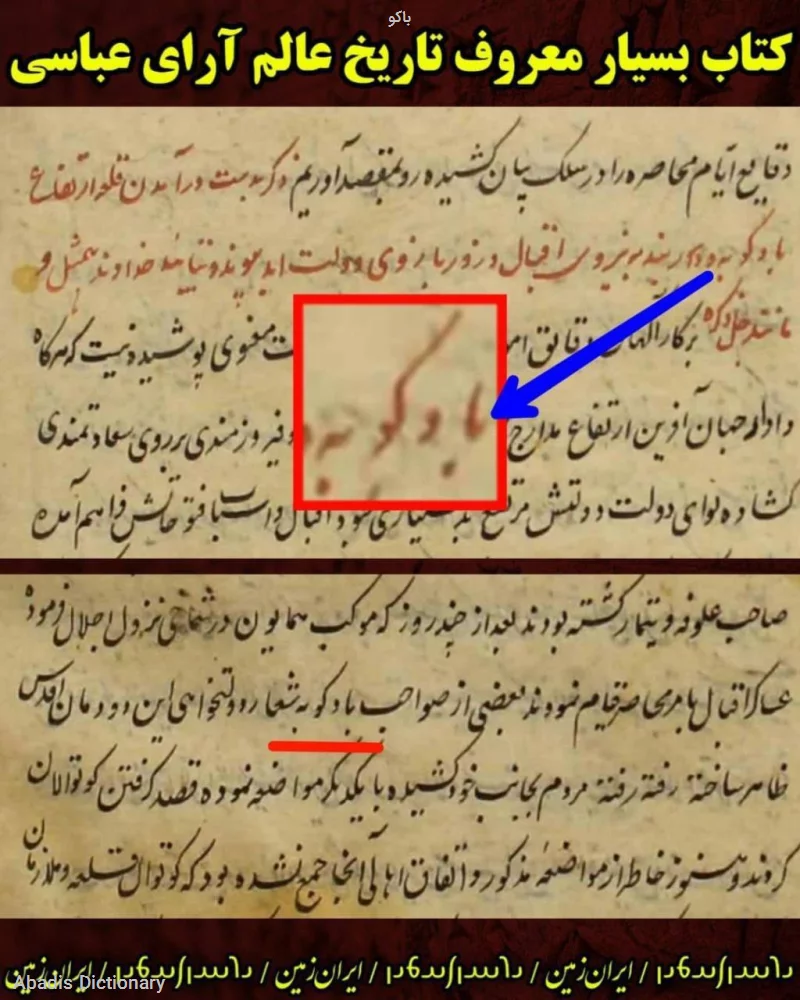 باکو
کتاب بسیار معروف تاریخ عالم آرای عباسی
وقایع ایام محاصره را در سلک بیان کشیده رو بمقصد آوریم ذکر بدست درآمدن قلاع ارتفاع
بادکوبه و دربند به نیروی اقبال و زور بازوی دولت ابد پیوند و تائید خداوند بیمثل و
مانند جل ذکره بر کارآگهان دقایق معنوی پوشیده نیست که هرگاه
دادار جهان آفرین ارتفاع مدارج و فیروزمندی بر روی سعادتمندی
بادکوبه
گشاده لوای دولت و
اقبال و اسباب فتوحاتش فراهم آمده
صاحب علوفه و تیمار گشته بودند بعد از چند روز که موکب همایون در شماخی نزول اجلال فرموده
عساکر اقبال بامر محاصره قیام نمودند بعضی از صواحب بادکوبه شعار دولتخواهی این دودمان اقدس
ظاهر ساخته رفته رفته مردم بجانب خود کشیده با یکدیگر مواضعه نموده قصد گرفتن کوتوالان
کردند و هنوز خاطر از مواضعه مذکور و اتفاق اهالی آنجا جمع نشده بود که کوتوال قلعه و ملازمان
ایران‌زمین / ایران‌زمین / ایران‌زمین
Abadis Dictionary